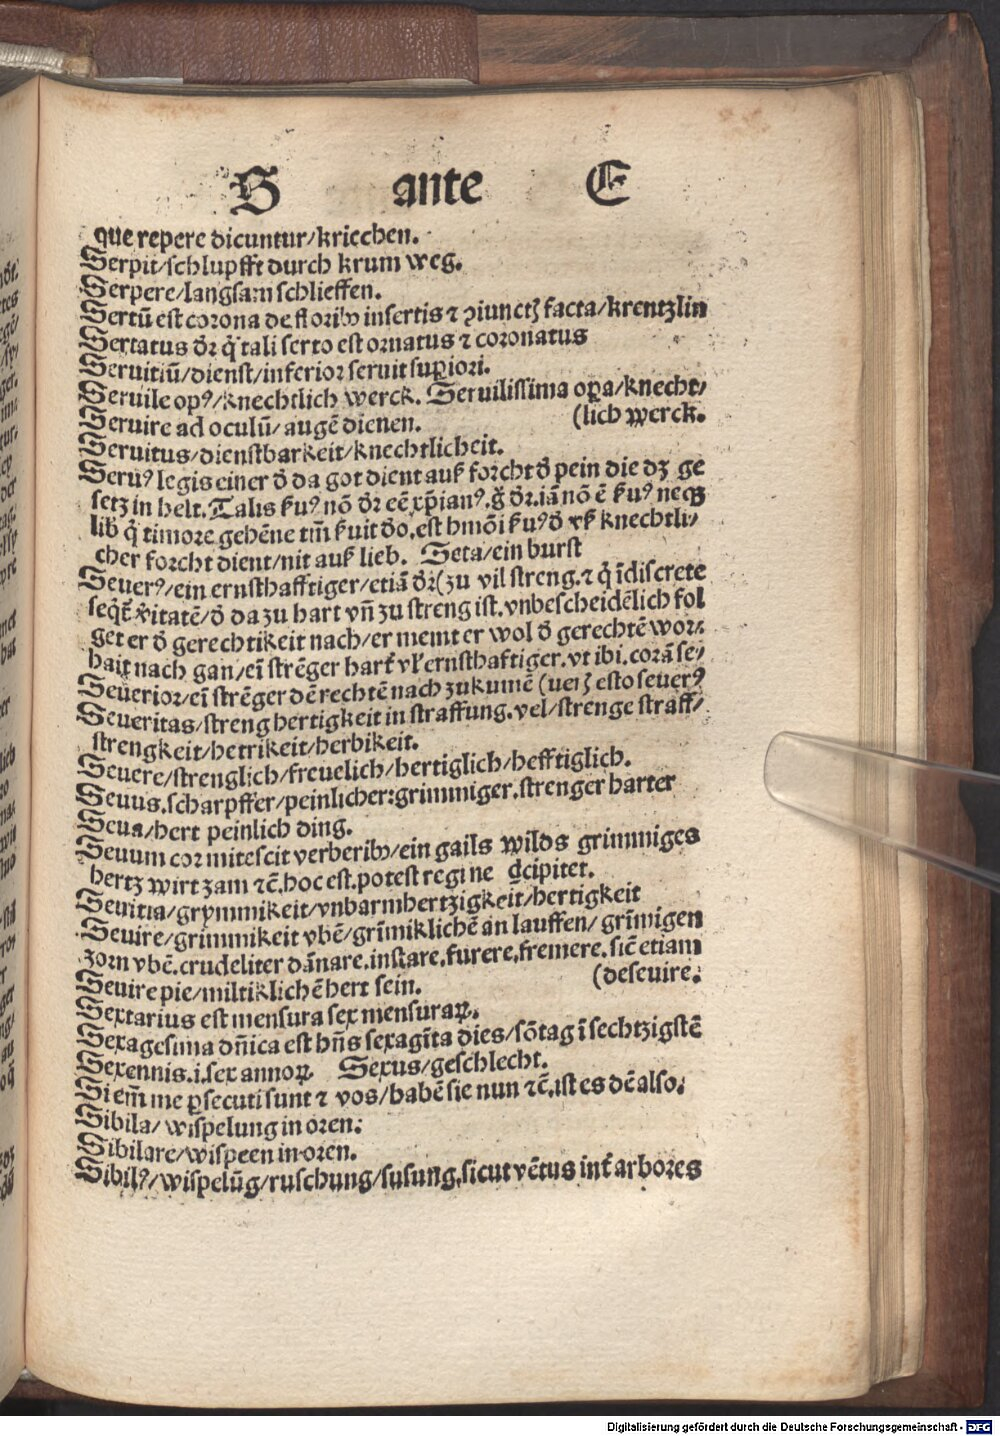 S ante E
que repere dicuntur/kriechen.
Serpit/schlupfft durch krum weg.
Serpere/langsam schlieffen.
Sertū est corona de floribꝰ insertis ⁊ ꝯiunctꝫ facta/krentzlin
Sertatus dr̄ q̇ tali serto est ornatus ⁊ coronatus
Seruitiū/dienst/inferior seruit suꝑiori.
Seruile opꝰ/knechtlich werck. Seruilissima oꝑa/knecht/
Seruire ad oculū/augē dienen. (lich werck.
Seruitus/dienstbarkeit/knechtlicheit.
Seruꝰ legis einer d̄ da got dient auß forcht d̄ pein die dz ge
setz in helt. Talis ẜuꝰ nō dr̄ eē xp̄ianꝰ. dr̄. iā nō ē ẜuꝰ neqꝫ
lib̄ q̇ timore gehēne tm̄ ẜuit do. est hmōi ẜuꝰ knechtli/
cher forcht dient/nit auß lieb. Seta/ein burst
Seuerꝰ/ein ernsthafftiger/etiā dr̄ (zu vil streng. ⁊ q̇ īdiscrete
seq̄t v̄itatē/d̄ da zu hart vn̄ zu streng ist. vnbescheidēlich fol
get er d̄ gerechtikeit nach/er meint er wol d̄ gerechtē wor/
hait nach gan/eī strēger hart vl̄ ernsthaftiger. vt ibi. corā se/
Seuerior/eī strēger dē rechtē nach zukumē (uerꝫ esto seuerꝰ
Seueritas/streng hertigkeit in straffung. vel/strenge straff/
strengkeit/hetrikeit/herbikeit.
Seuere/strenglich/freuelich/hertiglich/hefftiglich.
Seuus. scharpffer/peinlicher:grimmiger. strenger harter
Seua/hert peinlich ding.
Seuum cor mitescit verberibꝰ/ein gails wilds grimmiges
hertz wirt zam ⁊c̄. hoc est. potest regi ne cipitet.
Seuitia/grymmikeit/vnbarmhertzigkeit/hertigkeit
Seuire/grimmikeit vbē/grīmiklichē an lauffen/ grīmigen
zorn vbē. crudeliter dānare. instare. furere. fremere. sic̄ etiam
Seuire pie/miltiklichē hert sein. (deseuire.
Sextarius est mensura sex mensuraꝝ.
Sexagesima dn̄ica est hn̄s sexagīta dies/sōtag ī sechtzigstē
Sexennis. i. sex annoꝝ. Sexus/geschlecht.
Si em̄ me ꝑsecuti sunt ⁊ vos/habē sie nun ⁊c̄. ist es dē also.
Sibila/ wispelung in oren.
Sibilare/wispeen in oren.
Sibilꝰ/wispelūg/ruschung/susung. sicut vētus int̄ arbores
Digitalisierung gefördert durch die Deutsche Forschungsgemeinschaft - DFG